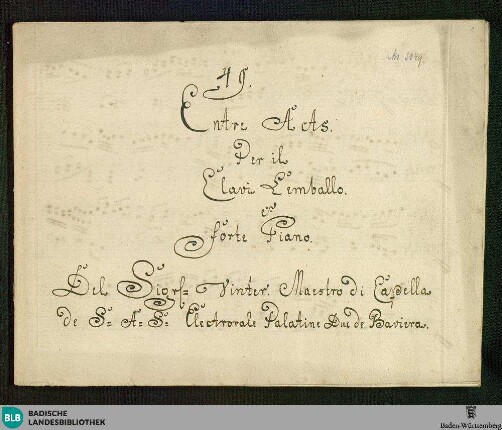 49.
Entre Acts.
Per il
Clavi Cemballo.
ô
forte Piano.
Del Sigre Vinter. Maestro di Capella
de S: A: S: Electrorale Palatine Duc de Baviera.
BLB
BADISCHE
LANDESBIBLIOTHEK
Baden-Württemberg